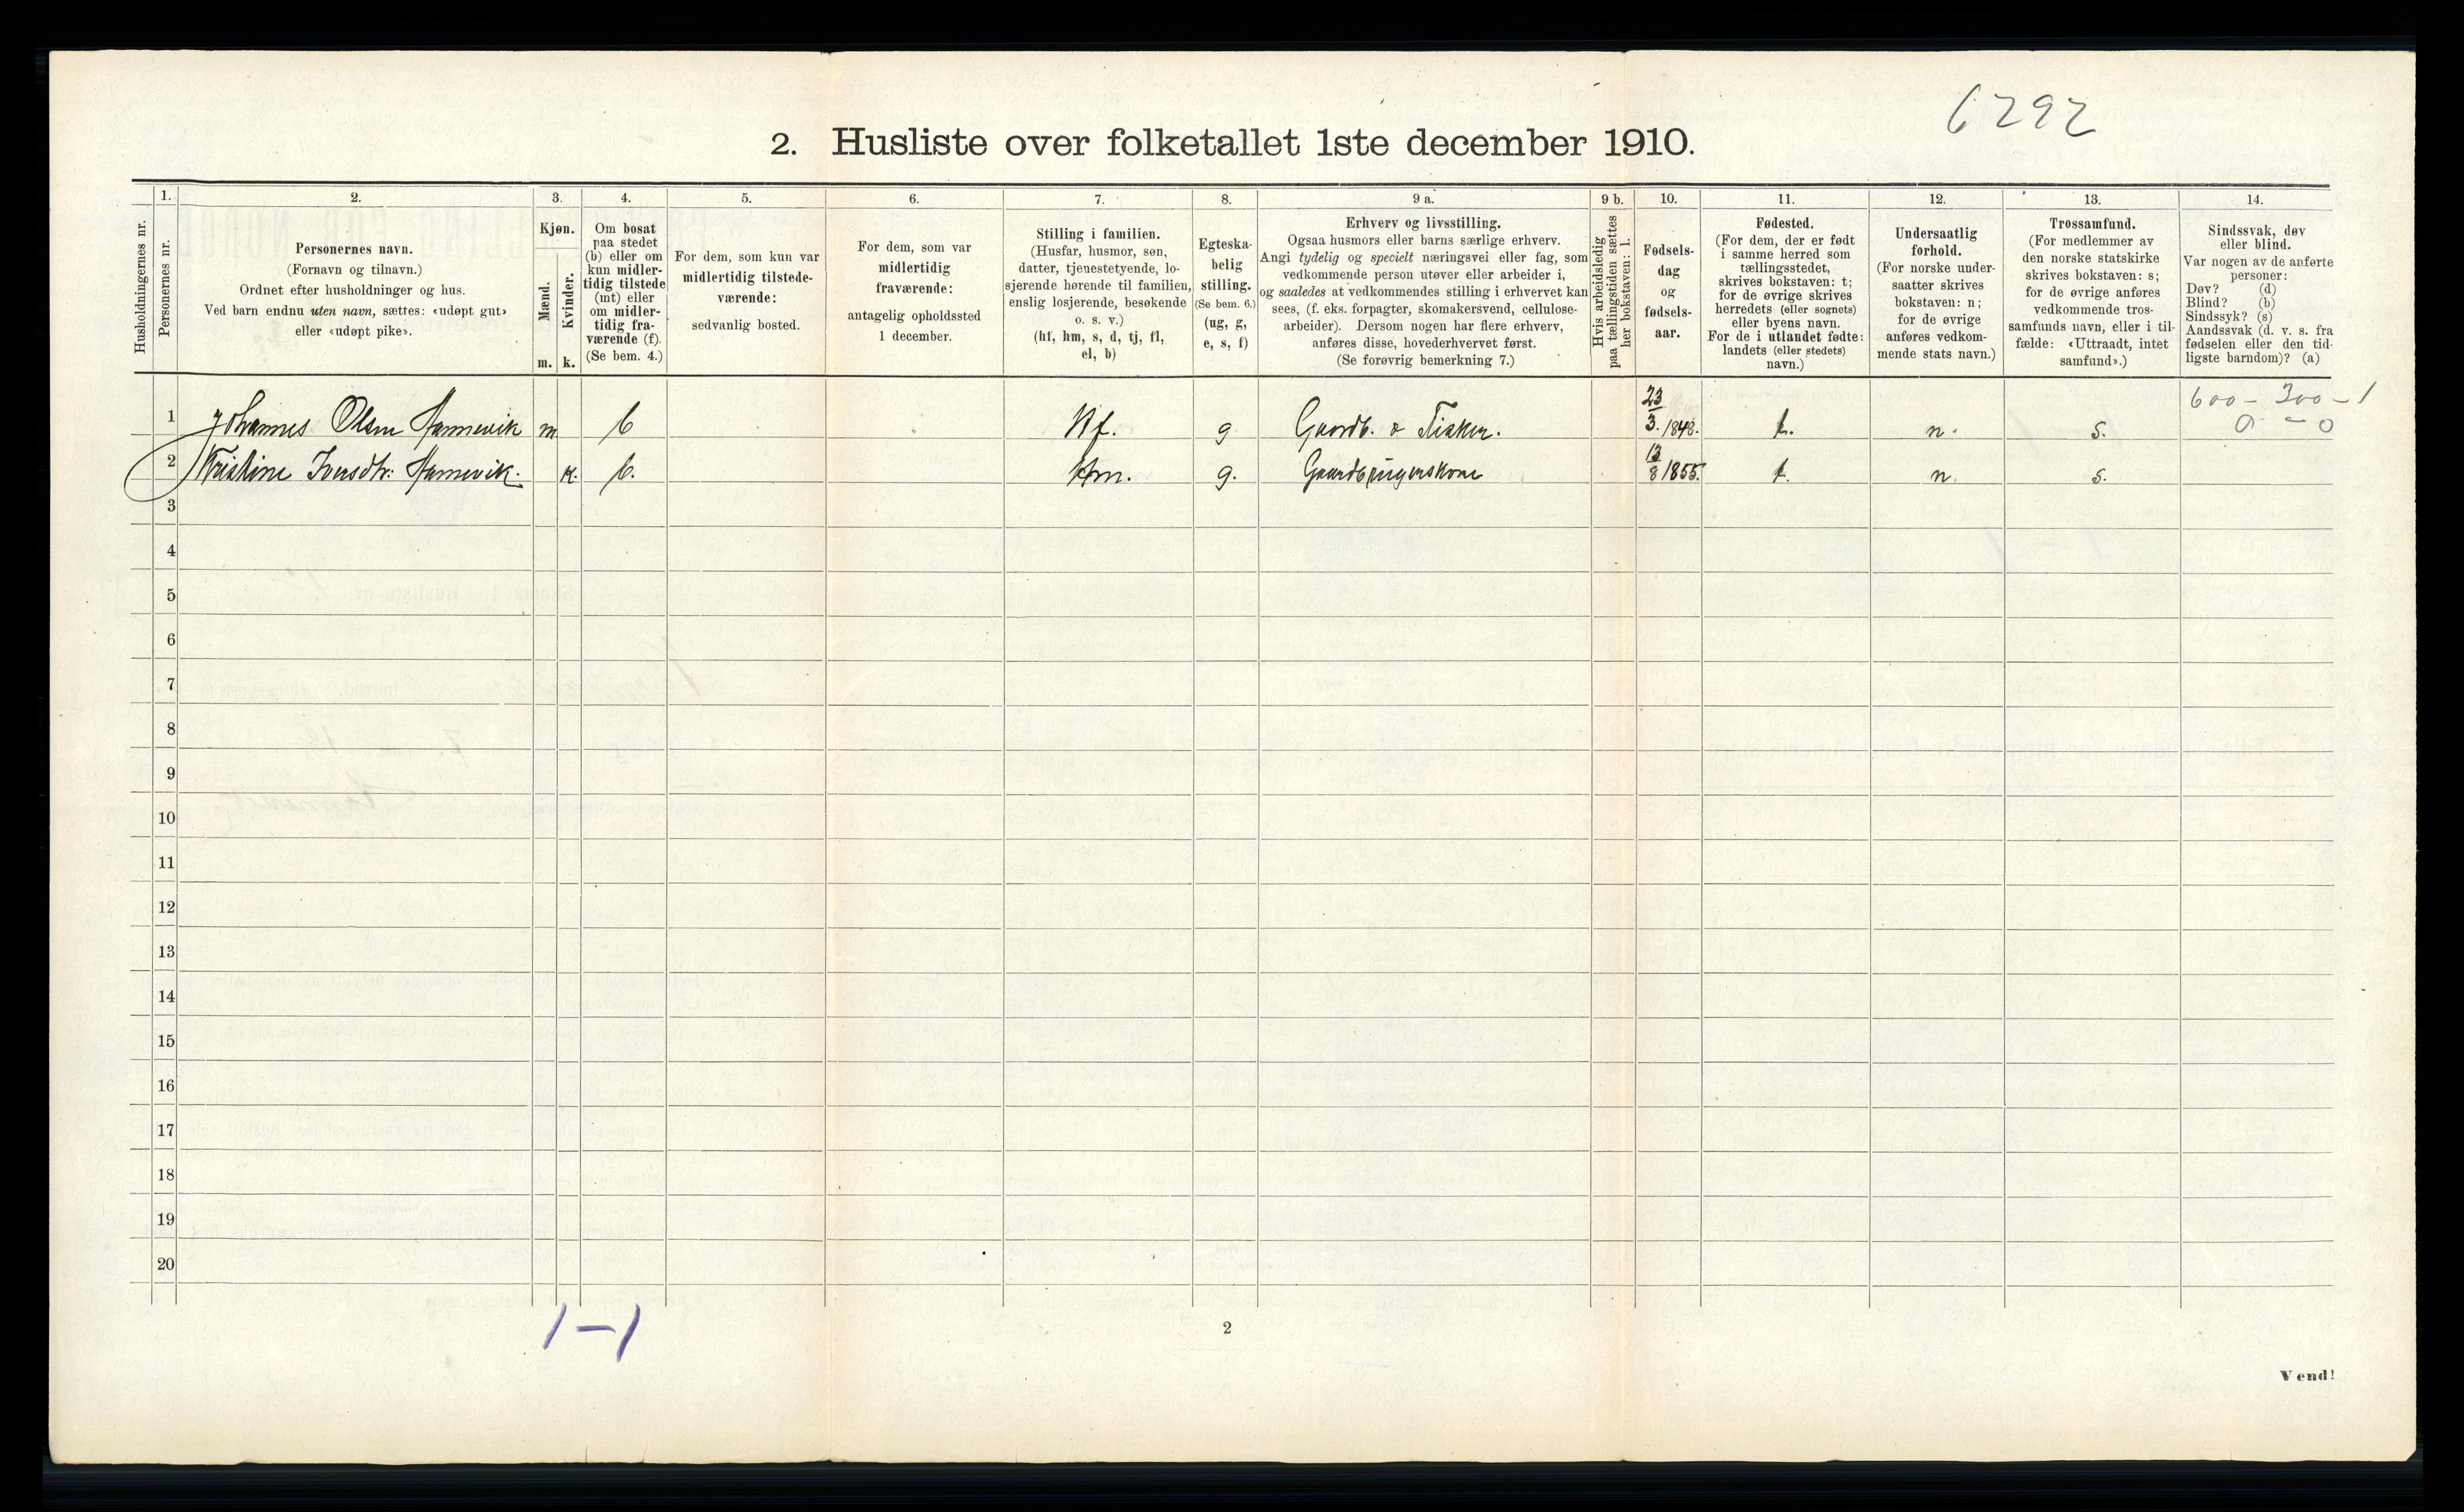 6292
2. Husliste over folketallet 1ste december 1910.
Husholdningernes nr.
1.
Personernes nr.
2.
Personernes navn.
(Fornavn og tilnavn.)
Ordnet efter husholdninger og hus.
Ved barn endnu uten navn, sættes: «udøpt gut»
eller «udøpt pike».
3.
Kjøn.
Mænd.
Kvinder.
m. k.
4.
Om bosat
paa stedet
(b) eller om
kun midler-
tidig tilstede
(mt) eller
om midler-
tidig fra-
værende (f).
(Se bem. 4.)
5.
For dem, som kun var
midlertidig tilstede-
værende:
sedvanlig bosted.
6.
For dem, som var
midlertidig
fraværende:
antagelig opholdssted
1 december.
7.
Stilling i familien.
(Husfar, husmor, søn,
datter, tjenestetyende, lo-
sjerende hørende til familien,
enslig losjerende, besøkende
o. s. v.)
(hf, hm, s, d, tj, fl,
el, b)
8.
Egteska-
belig
stilling.
(Se bem. 6.)
(ug, g,
e, s, f)
9 a.
Erhverv og livsstilling.
Ogsaa husmors eller barns særlige erhverv.
Angi tydelig og specielt næringsvei eller fag, som
vedkommende person utøver eller arbeider i,
og saaledes at vedkommendes stilling i erhvervet kan
sees, (f. eks. forpagter, skomakersvend, cellulose-
arbeider). Dersom nogen har flere erhverv,
anføres disse, hovederhvervet først.
(Se forøvrig bemerkning 7.)
9 b.
Hvis arbeidsledig
paa tællingstiden sættes
her bokstaven: l.
10.
Fødsels-
dag
og
fødsels-
aar.
11.
Fødested.
(For dem, der er født
i samme herred som
tællingsstedet,
skrives bokstaven: t;
for de øvrige skrives
herredets (eller sognets)
eller byens navn.
For de i utlandet fødte:
landets (eller stedets)
navn.)
12.
Undersaatlig
forhold.
(For norske under-
saatter skrives
bokstaven: n;
for de øvrige
anføres vedkom-
mende stats navn.)
13.
Trossamfund.
(For medlemmer av
den norske statskirke
skrives bokstaven: s;
for de øvrige anføres
vedkommende tros-
samfunds navn, eller i til-
fælde: «Uttraadt, intet
samfund».)
14.
Sindssvak, døv
eller blind.
Var nogen av de anførte
personer:
Døv? (d)
Blind? (b)
Sindssyk? (s)
Aandssvak (d. v. s. fra
fødselen eller den tid-
ligste barndom)? (a)
600 - 300 - 1
0 - 0
1 Johannes Olsen Hannevik m b Hf. g Gaardb. & Fisker. 23/3. 1848. t. n. s.
2 Kristine Iversdtr: Hannevik. k. b. Hm. g. Gaardbrugerskone 13/8 1855. t. n. s.
3
4
5
6
7
8
9
10
11
12
13
14
15
16
17
18
19
20
1-1
2
Vend!